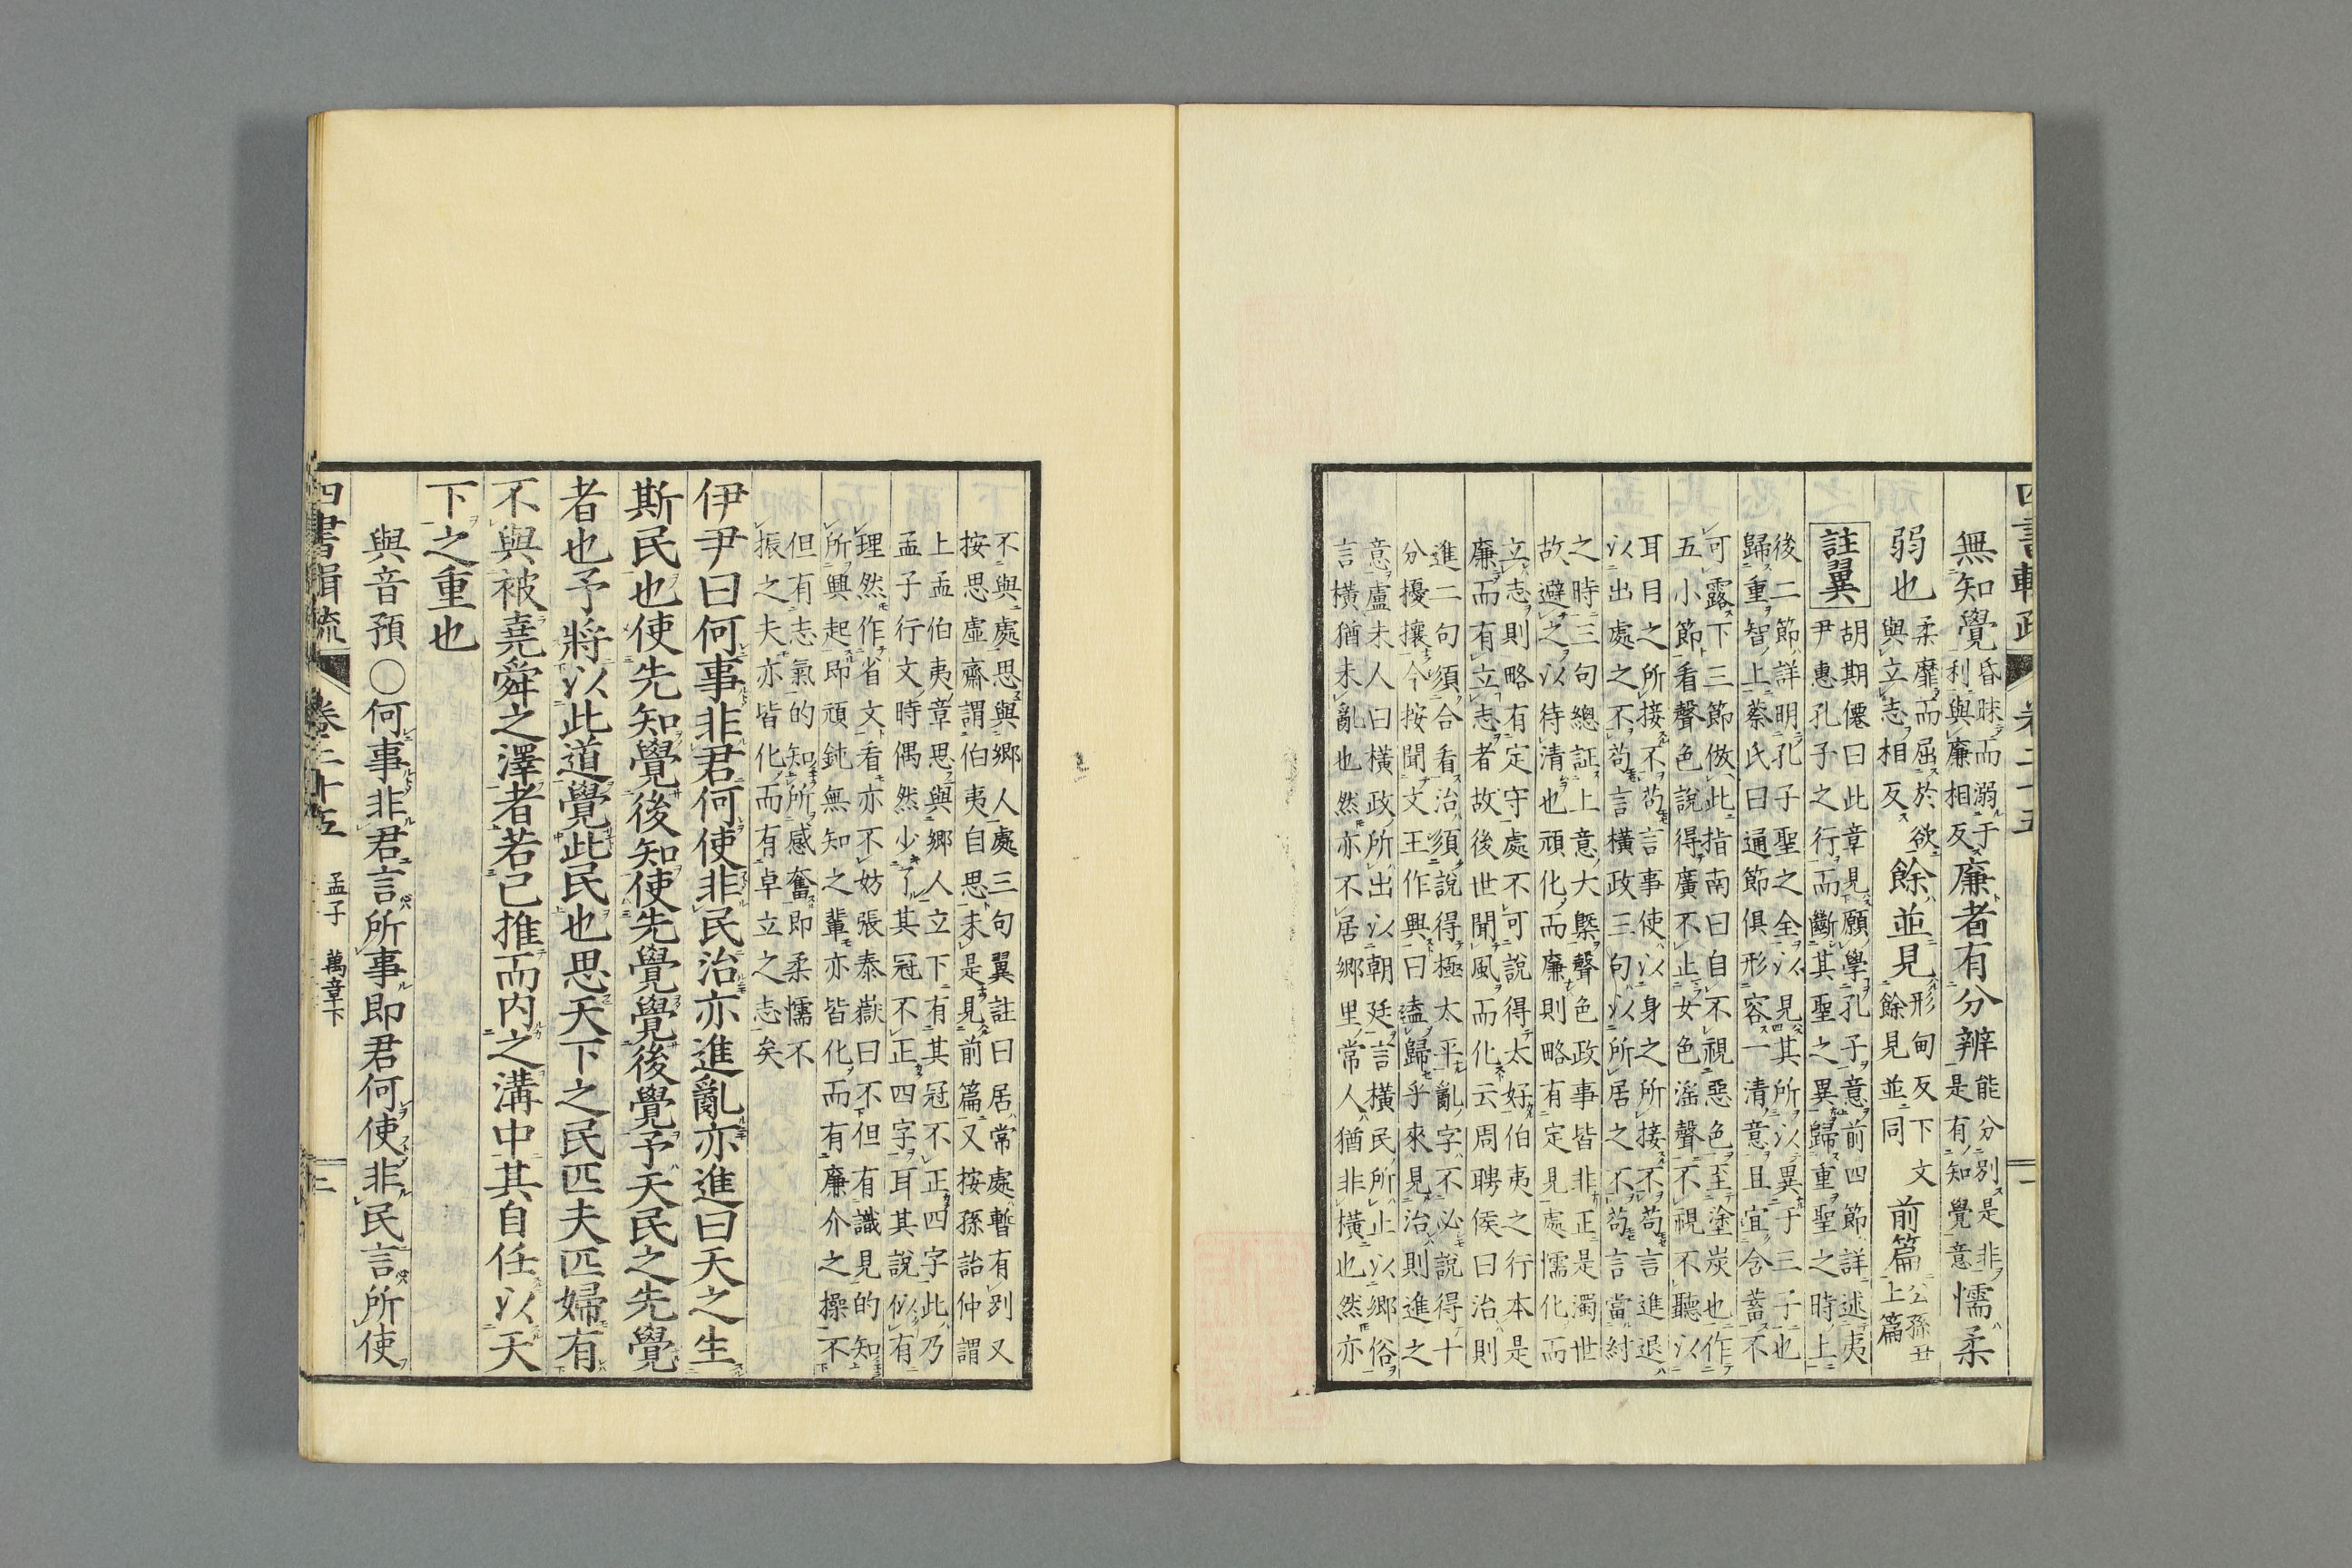 無知覺昏昧而溺于利與廉相反廉者有分辨能分別是非是有知覺意懦柔
弱也柔靡而屈於欲與立志相反餘並見形甸反下文餘見並同前篇公孫丑上篇
註翼胡期僊曰此章見願學孔子意前四節詳述夷
尹惠孔子之行而斷其聖之異歸重聖之時上
後二節詳明孔子聖之全以見其所以異于三子也
歸重智上蔡氏曰通節俱形容一清意且宜含蓄不
可露下三節倣此指南曰自不視惡色至塗炭也作
五小節看聲色說得廣不止女色淫聲不視不聽以
耳目之所接不苟言事使以身之所接不苟言進退
以出處之不苟言橫政三句以所居之不苟言當紂
之時三句總証上意大槩聲色政事皆非正是濁世
故避之以待清也頑化而廉則略有定見處懦化而
立志則略有定守處不可說得太好伯夷之行本是
廉而有立志者故後世聞風而化云周聘侯曰治則
進二句須合看治須說得極太平亂字不必說得十
分擾攘今按聞文王作興曰盍歸乎來見治則進之
意盧未人曰橫政所出以朝廷言橫民所止以鄉俗
言橫猶未亂也然亦不居鄉里常人猶非橫也然亦
不與處思與鄉人處三句翼註曰居常處暫有別又
按思虛齋謂伯夷自思未是見前篇又按孫詒仲謂
上孟伯夷章思與鄉人立下有其冠不正四字此乃
孟子行文時偶然少了其冠不正四字耳其說似有
理然作省文看亦不妨張泰嶽曰不但有識見的知
所興起即頑鈍無知之輩亦皆化而有廉介之操不
但有志氣的知所感奮即柔懦不
振之夫亦皆化而有卓立之志矣
伊尹曰何事非君何使非民治亦進亂亦進曰天之生
斯民也使先知覺後知使先覺覺後覺予天民之先覺
者也予將以此道覺此民也思天下之民匹夫匹婦有
不與被堯舜之澤者若己推而内之溝中其自任以天
下之重也
與音預〇何事非君言所事即君何使非民言所使
四書輯疏 卷二十五 孟子 萬章下 二